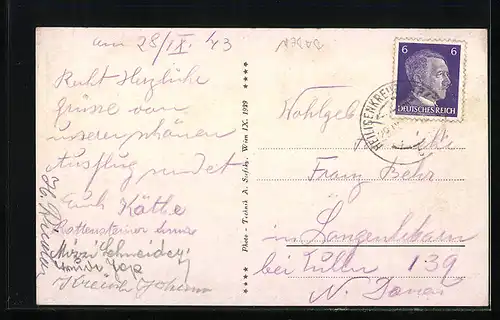 am 28/IX. 43
BADEN
Recht Herzliche
Grüsse von
unserem schönen
Ausflug sendet
Euch Käthe
Mizzi Schneider
Photo - Technik A. Stefsky, Wien IX. 1939
6 6
DEUTSCHES REICH
HEILIGENKREUZ
Wohlgeb
Franz Behr
in Langenlebarn
bei Tulln 139
N. Donau